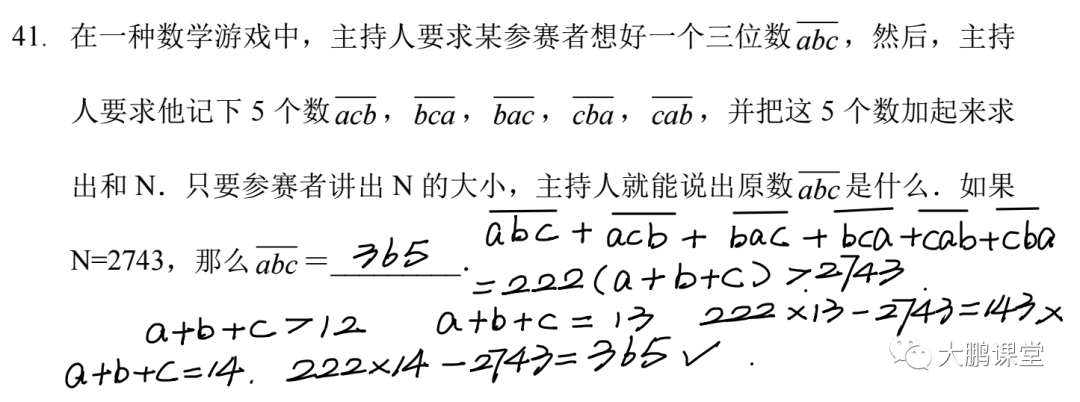 41. 在一种数学游戏中，主持人要求某参赛者想好一个三位数 a̅b̅c̅，然后，主持
人要求他记下 5 个数 a̅c̅b̅，b̅c̅a̅，b̅a̅c̅，c̅b̅a̅，c̅a̅b̅，并把这 5 个数加起来求
出和 N．只要参赛者讲出 N 的大小，主持人就能说出原数 a̅b̅c̅ 是什么．如果
a̅b̅c̅ + a̅c̅b̅ + b̅a̅c̅ + b̅c̅a̅ + c̅a̅b̅ + c̅b̅a̅
N=2743，那么 a̅b̅c̅ = 365 .
= 222(a+b+c) > 2743.
a+b+c > 12 a+b+c = 13 222×13-2743=143 ×
a+b+c=14. 222×14-2743=365 ✓ .
大鹏课堂